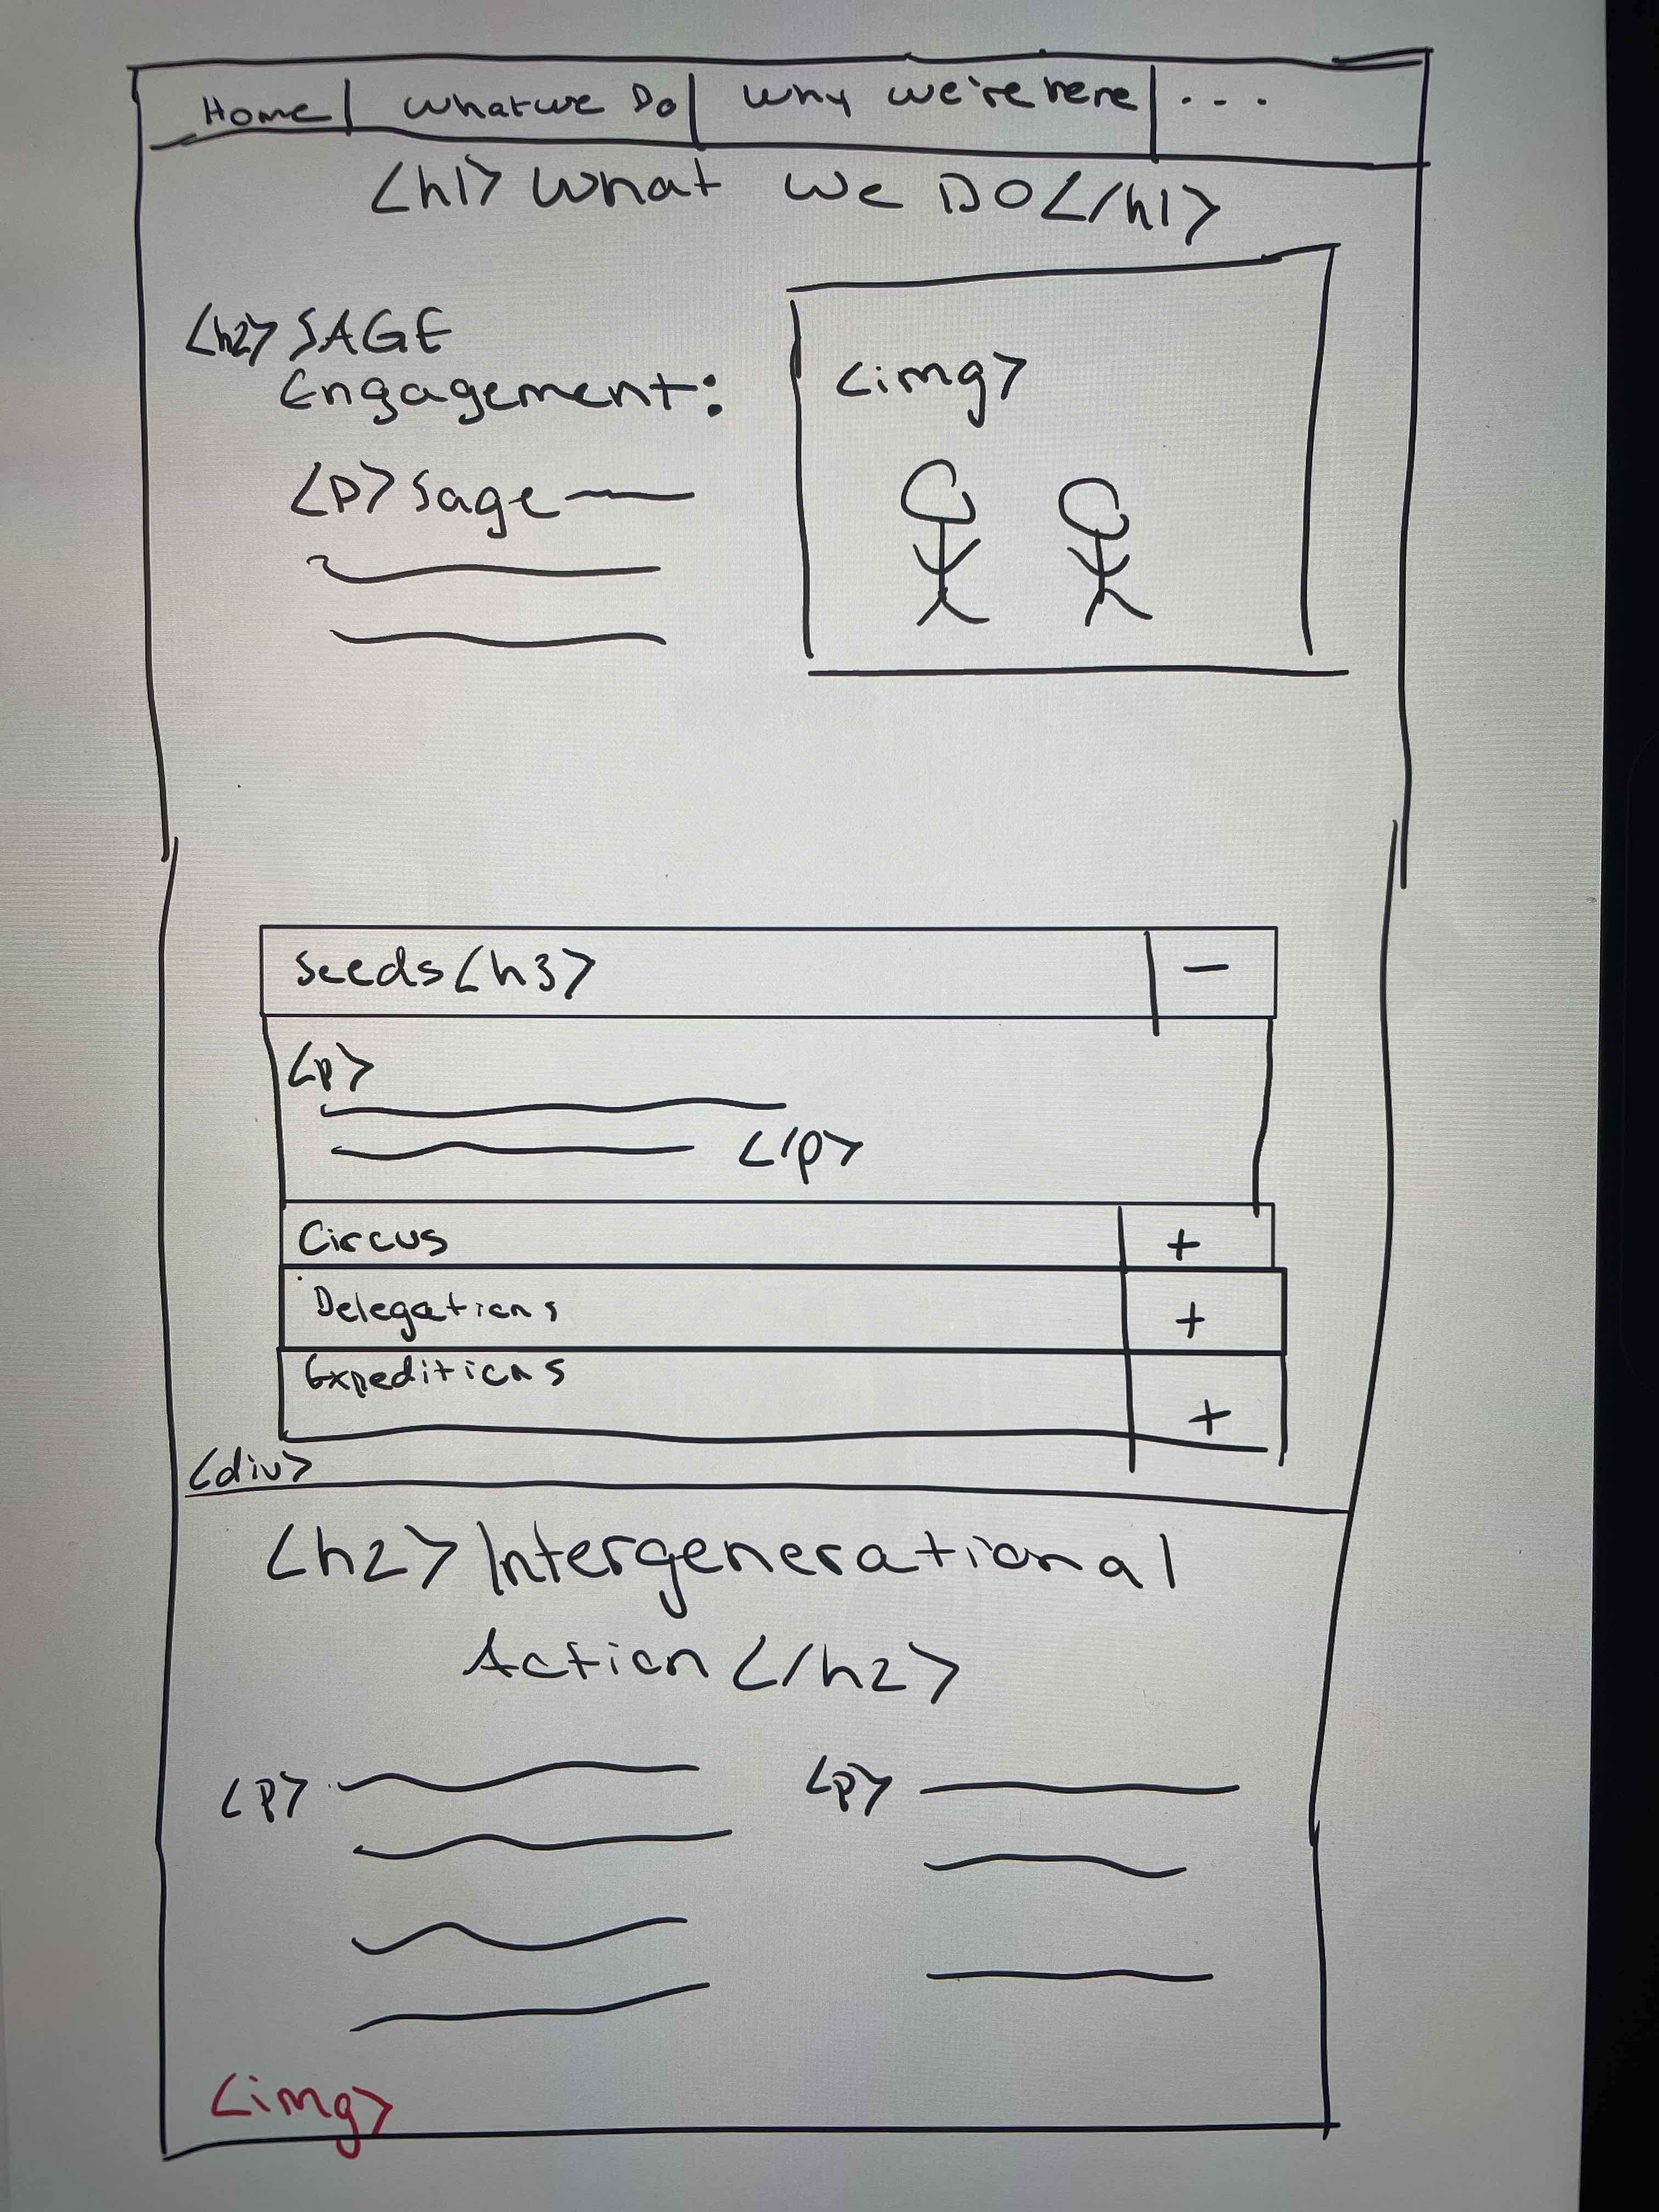 Home | What we Do | Why we're here | ...
<h1> What We DO </h1>
<h2> SAGE
Engagement:
<p> Sage
<img>
Seeds <h3> −
<p>
</p>
Circus +
Delegations +
Expeditions +
<div>
<h2> Intergenerational
Action </h2>
<p> <p>
<img>